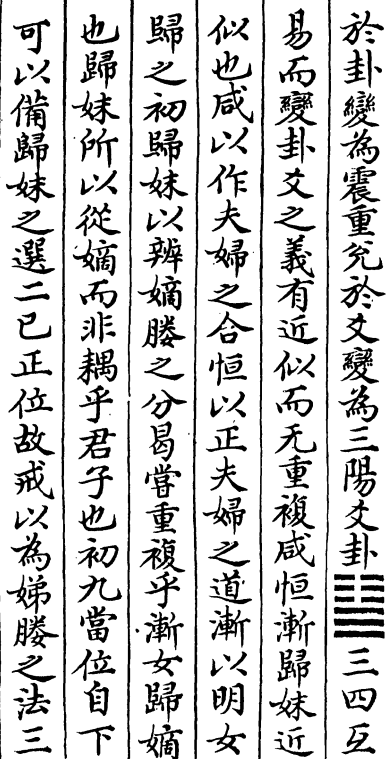 於卦變為震重兊於爻變為三陽爻卦䷵三四互
易而變卦爻之義有近似而无重複咸恒漸歸妹近
似也咸以作夫婦之合恒以正夫婦之道漸以明女
歸之初歸妹以辨嫡媵之分曷嘗重複乎漸女歸嫡
也歸妹所以從嫡而非耦乎君子也初九當位自下
可以備歸妹之選二已正位故戒以為娣媵之法三